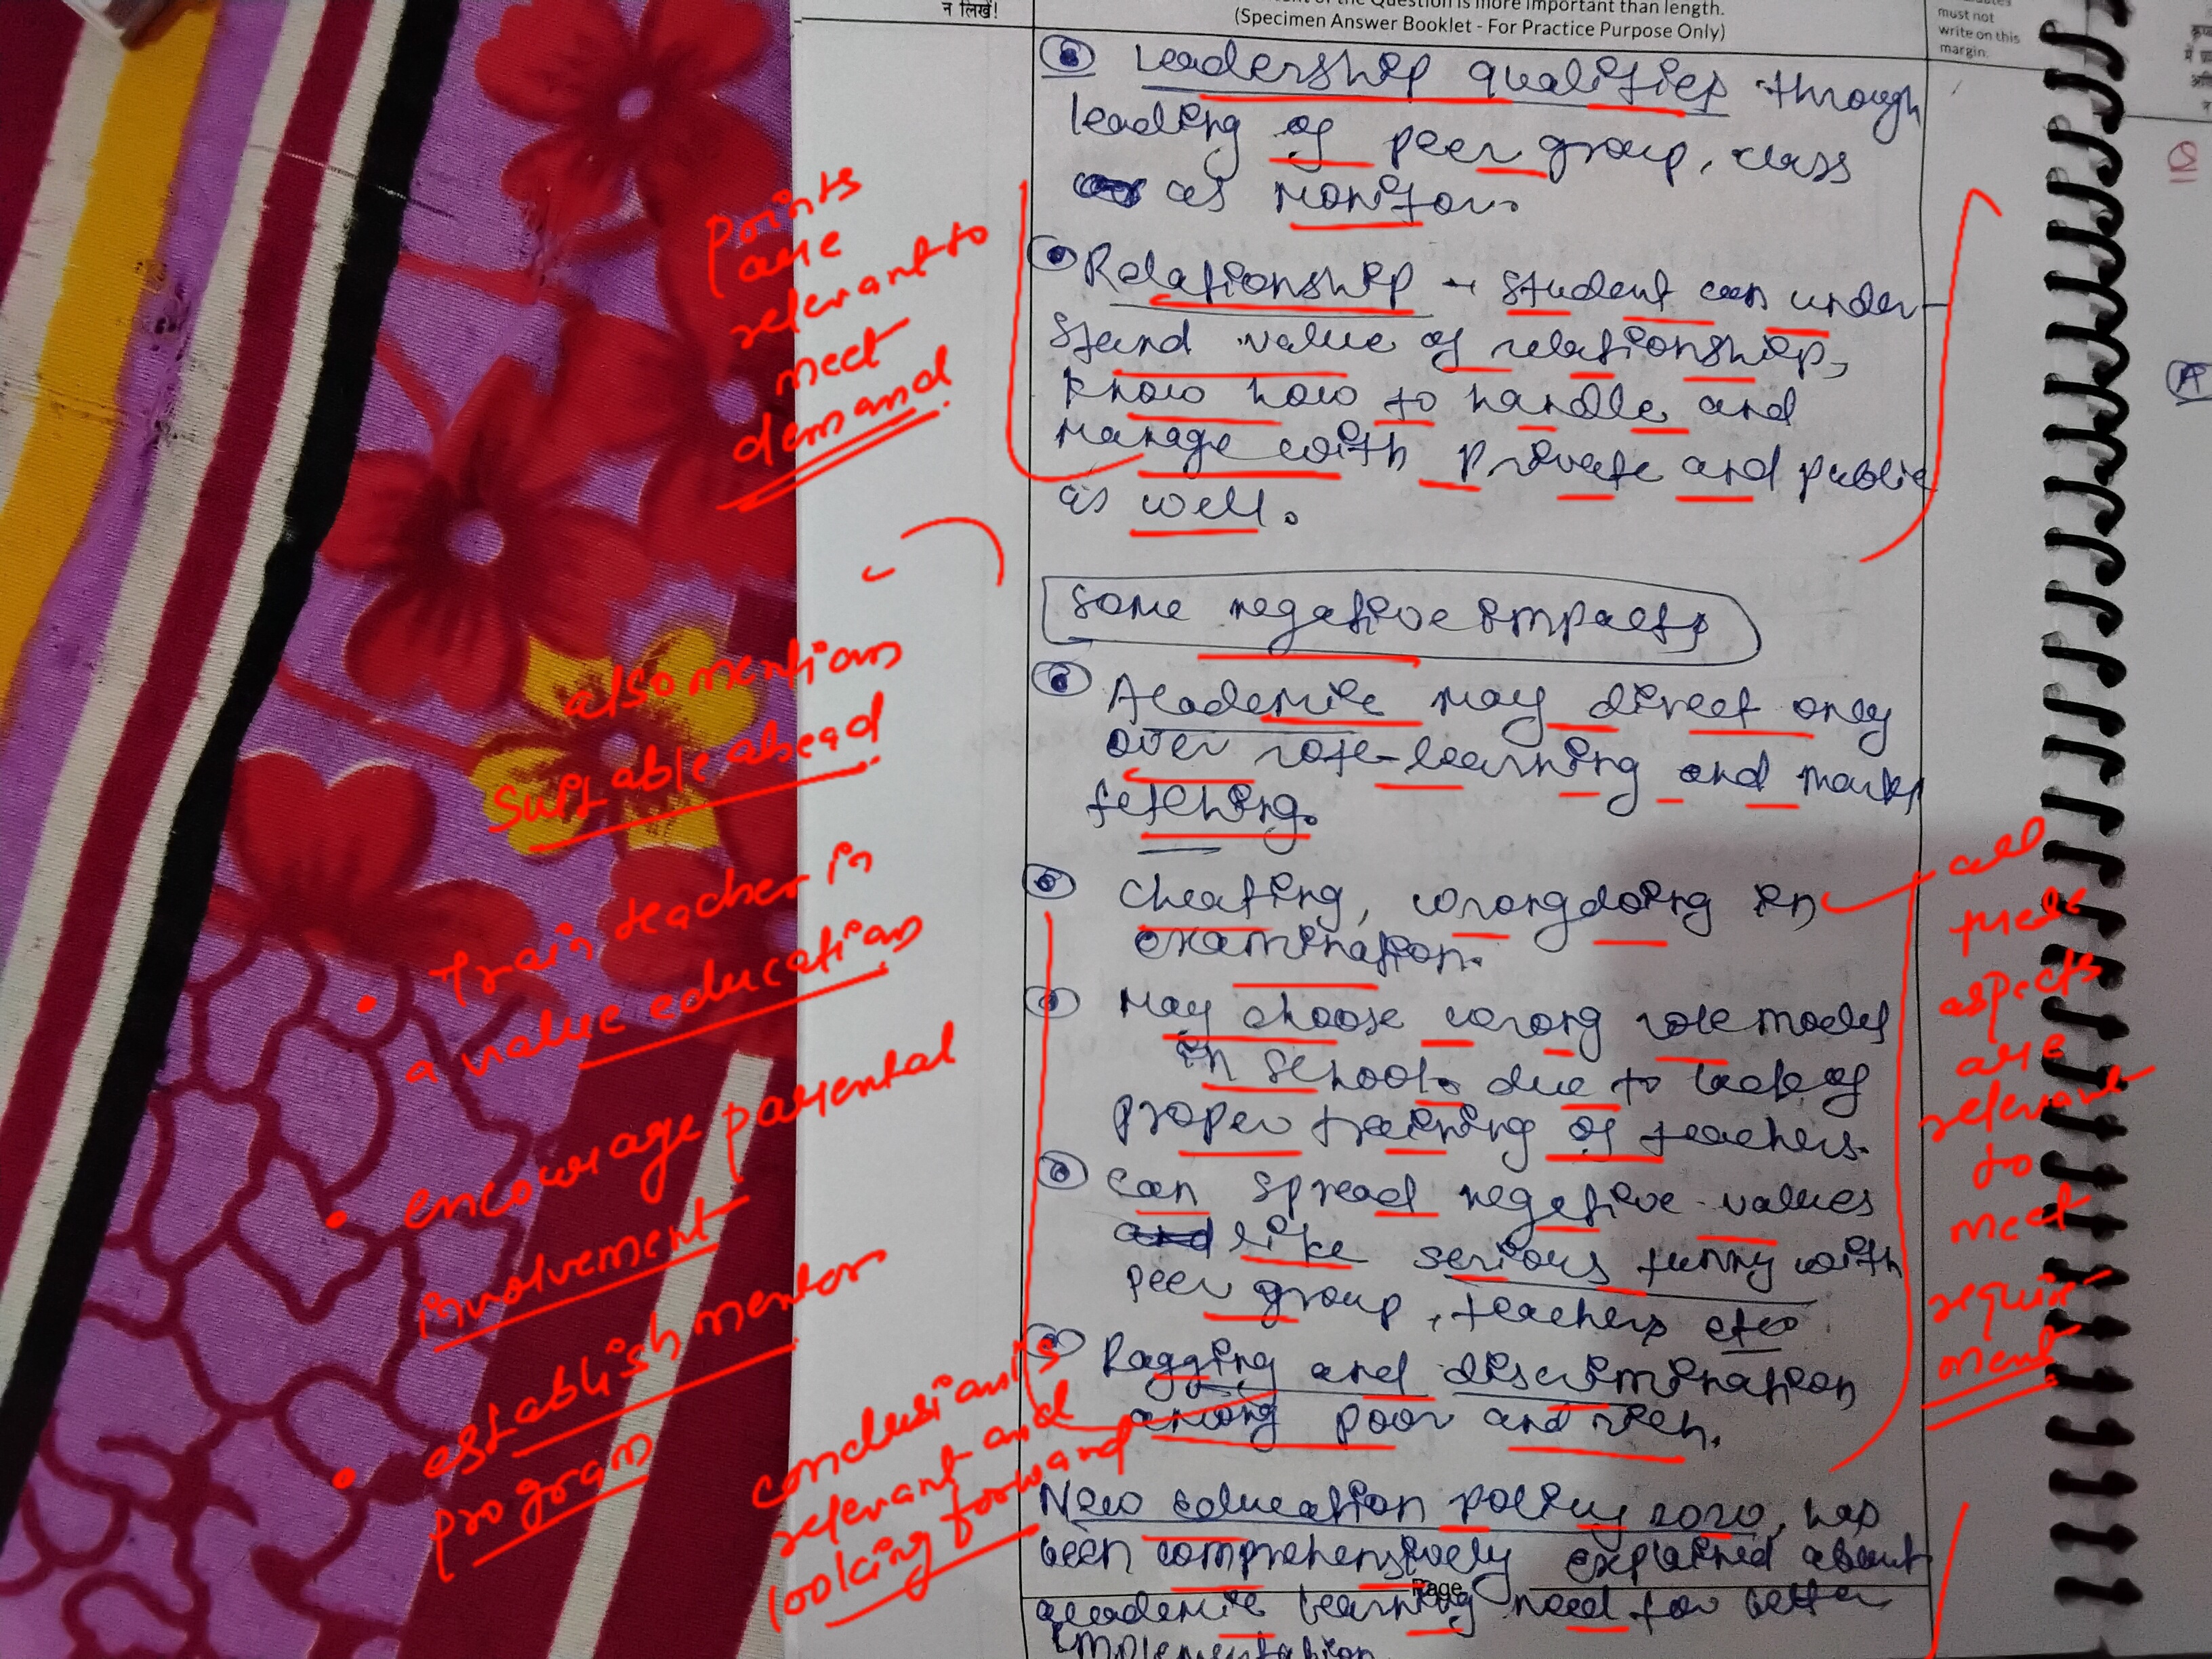 न लिखें!
Question is more important than length.
(Specimen Answer Booklet - For Practice Purpose Only)
must not
write on this
margin.
Leadership qualities through
leading of peer group, class
as Monitor.
Relationship → student can under-
stand value of relationship,
know how to handle and
Manage with private and public
as well.
Some negative impacts
Academic may direct only
over rote-learning and marks
fetching.
Cheating, wrongdoing in
examination.
May choose wrong role model
in school due to lack of
proper training of teachers.
Can spread negative values
and like serious funny with
peer group, teachers etc
Ragging and discrimination
among poor and rich.
New education policy 2020, has
been comprehensively explained about
Page
academic learning need for better
implementation
points
are
relevant to
meet
demand.
also mention
suitable ahead
• Train teacher in
a value education
• encourage parental
involvement
• establish mentor
program
conclusion is
relevant and
looking forward
all
these
aspects
are
relevant
to
meet
require
ment
A